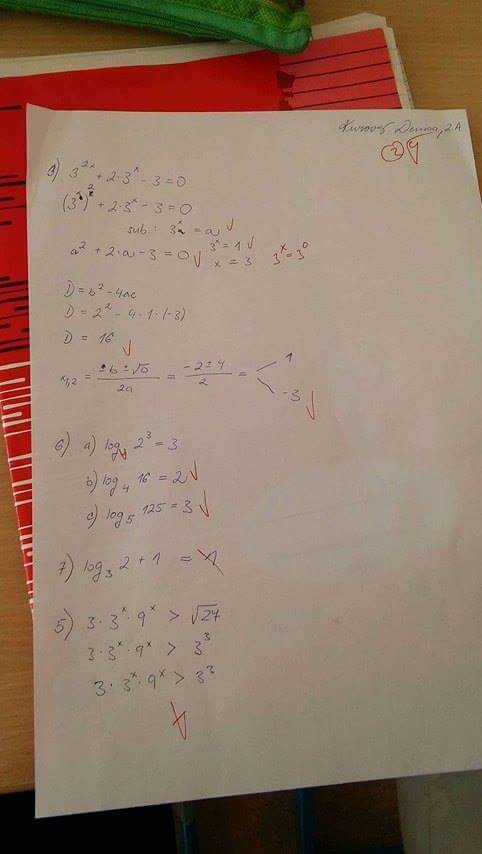 2A
3^2x + 2·3^x - 3 = 0
(3^x)^2 + 2·3^x - 3 = 0
sub.: 3^x = a
a^2 + 2·a - 3 = 0 3^x = 1
x = 3 3^x = 3^0
D = b^2 - 4ac
D = 2^2 - 4·1·(-3)
D = 16
x1,2 = -b ± √D / 2a = -2 ± 4 / 2 = 1
-3
6) a) log 2^3 = 3
b) log4 16 = 2
c) log5 125 = 3
7) log3 2 + 1 =
5) 3·3^x·9^x > √27
3·3^x·9^x > 3^3
3·3^x·9^x > 3^3